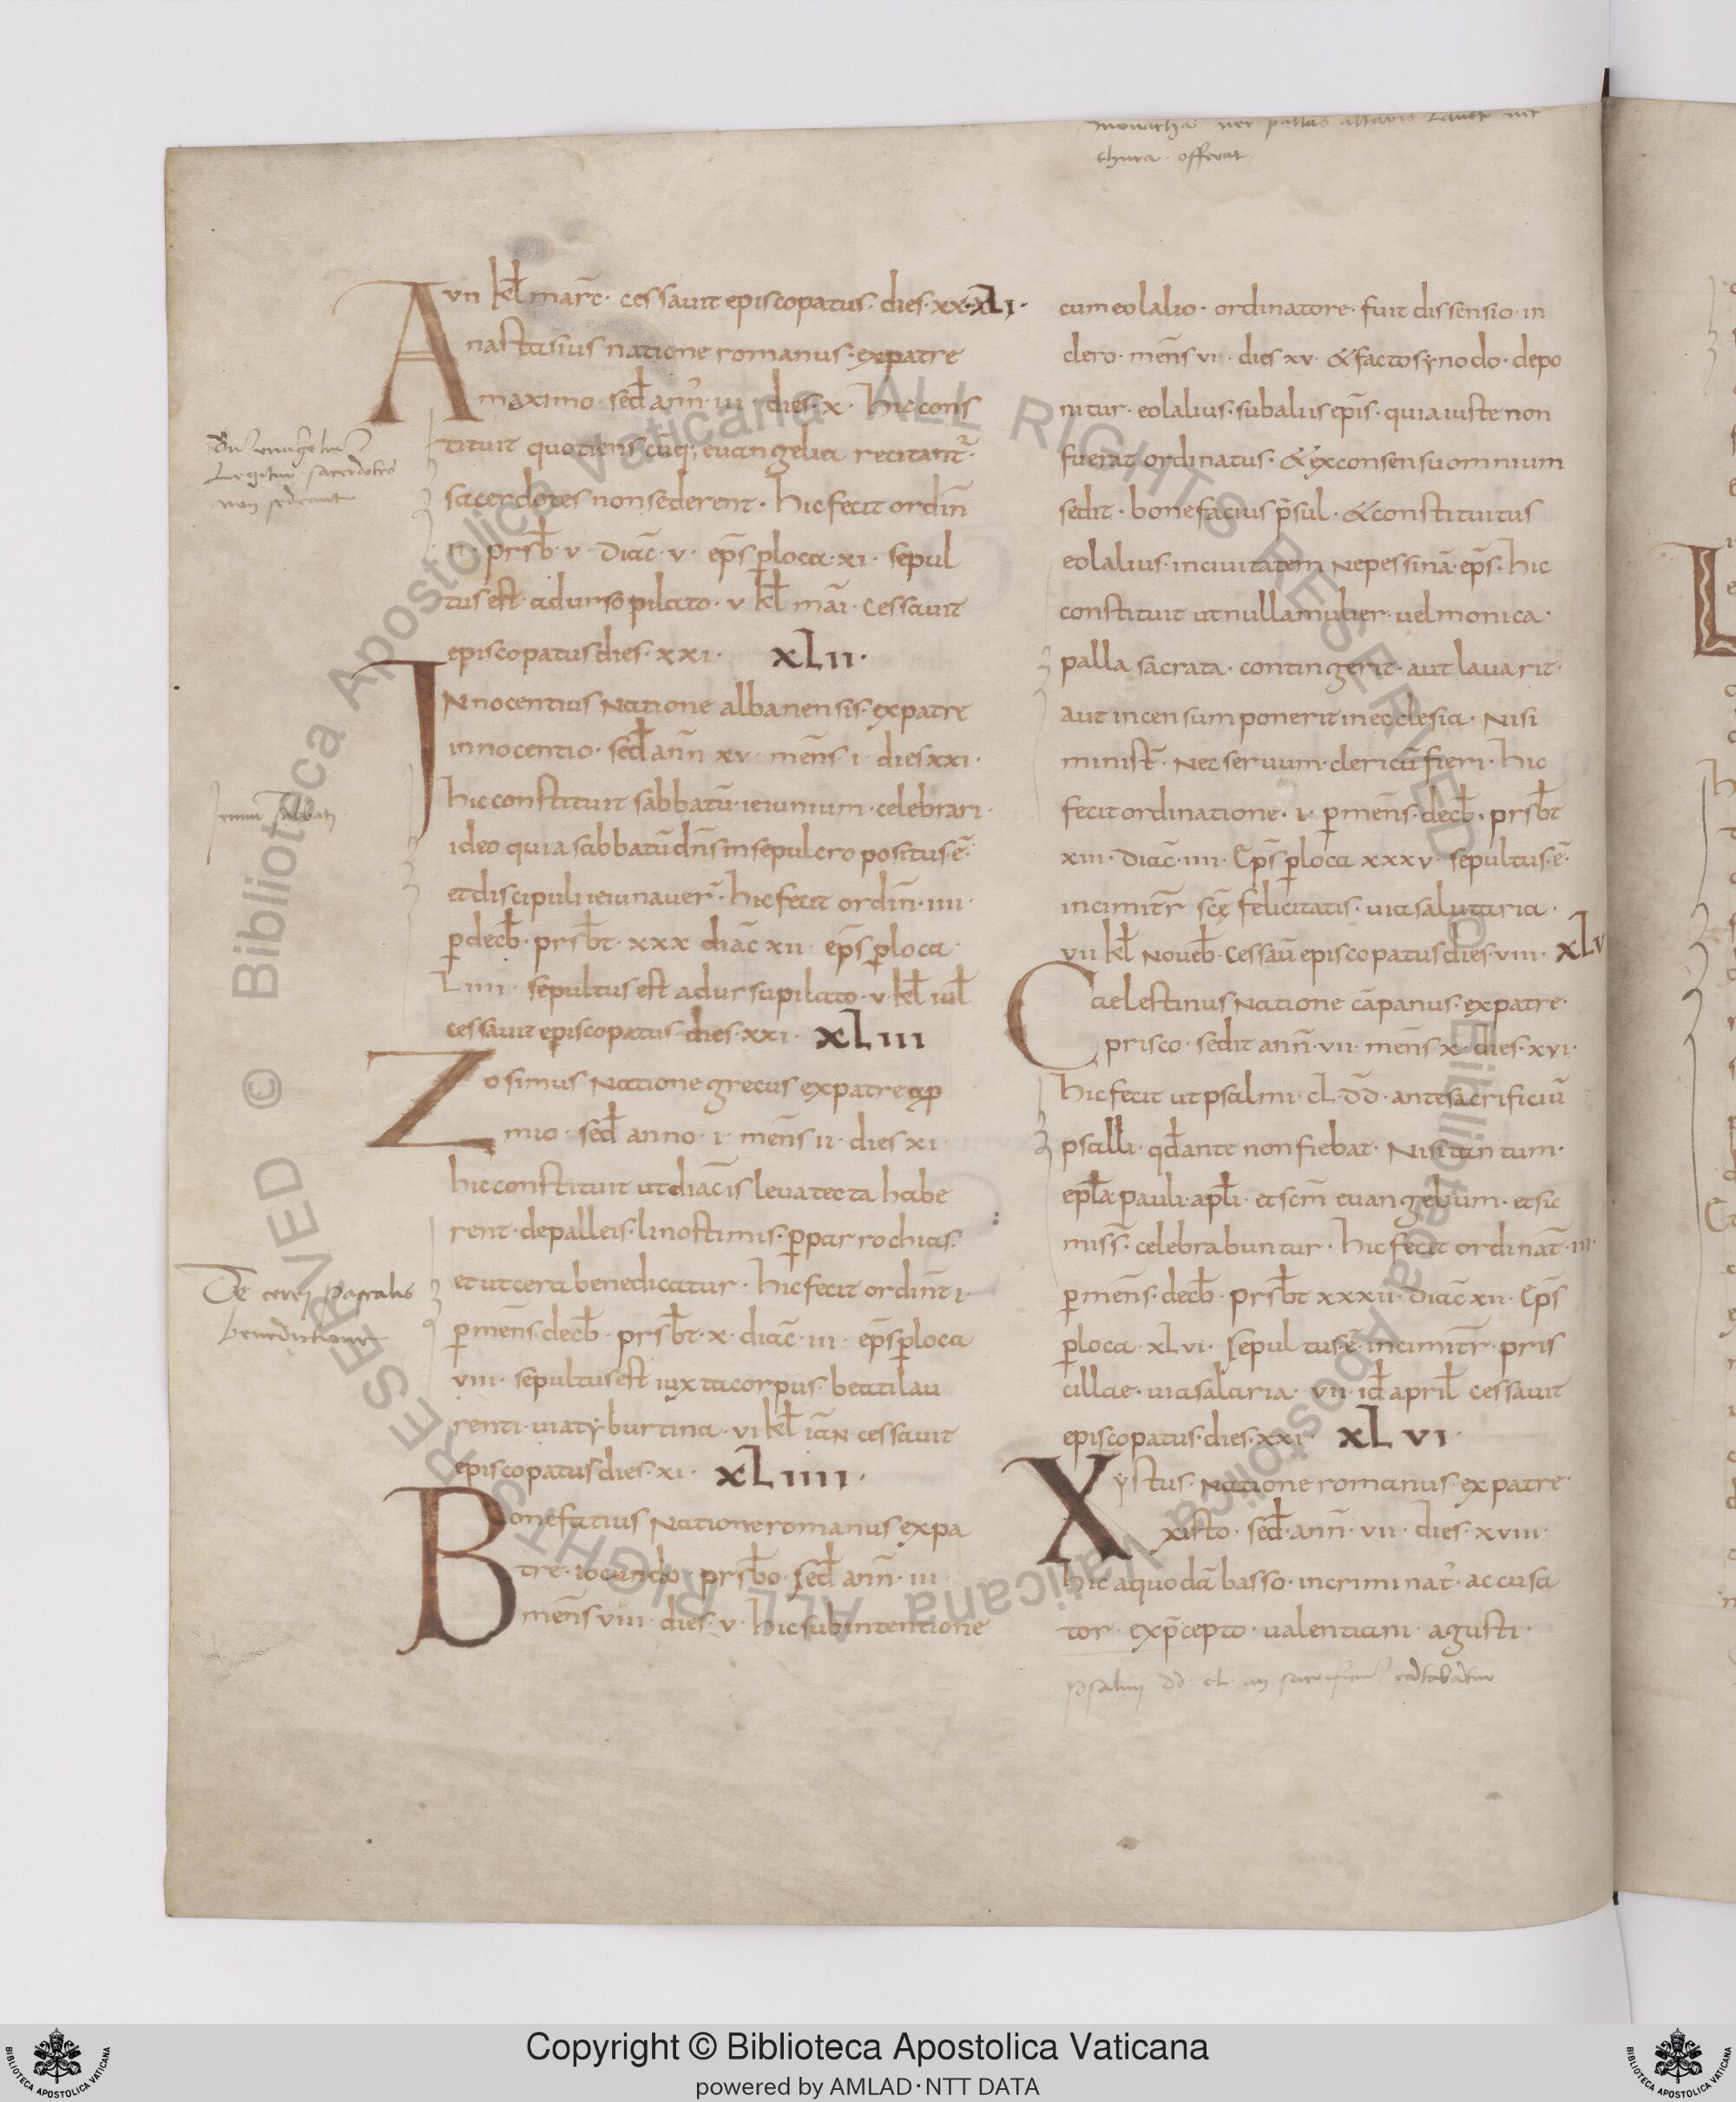 monacha nec pallas altaris lauet nec
thura · offerat
vii kl̄ marc̄ · cessauit episcopatus · dies · xx · xLi ·
Anastasius natione romanus · expatre
maximo · sed̄ ann̄ · iii · dies · x · hic cons
tituit quotiens cūq; euangelia recitant̄ ·
sacerdotes non sederent · hic fecit ordin̄
ii · prsb̄ · v · diac̄ · v · ep̄s ploca · xi · sepul
tus est · ad urso pilato · v kl̄ mai · cessauit
episcopatus dies · xxi · xLii ·
INnocentius Natione albanensis · expatre
innocentio · sed̄ ann̄ xv · mens̄ i · dies xxi ·
hic constituit sabbatū · ieiunium · celebrari ·
ideo quia sabbatū dn̄s in sepulcro positus · ē ·
et discipuli ieiunauer̄ · hic fecit ordin̄ · iiii ·
p decb̄ · prsb̄t · xxx diac̄ xii · ep̄s ploca ·
Liiii · sepultus est ad ursu pilato · v · kl̄ iul̄
cessauit episcopatus · dies · xxi · xLiii
Zosimus Natione grecus expatre apr
mio · sed̄ anno · i · mens̄ ii · dies xi ·
hic constituit ut diac̄is leua tecta habe
rent · depalleis · linostimis · p parrochias ·
et ut cera benedicatur · hic fecit ordin̄t i ·
p mens̄ decb̄ · prsb̄t · x · diac̄ · iii · ep̄s ploca
viii · sepultus est iuxta corpus · beati lau
renti · uia tyburtina · vi kl̄ iaN cessauit
episcopatus dies · xi · xLiiii ·
Bonefatius Natione romanus expa
tre · iocundo · prsb̄o · sed̄ ann̄ · iii ·
mens̄ viii · dies · v · hic sub intentione
cum eolalio · ordinatore · fuit dissensio · in
clero · mens̄ vi · dies xv · & facto synodo · depo
nitur · eolalius · sub aliis ep̄is · quia iuste non
fuerat ordinatus · & ex consensu omnium
sedit · bonefacius p̄sul · & constituitus
eolalius · in ciuitatem Nepessinā · ep̄s · hic
constituit ut nulla mulier · uel monica ·
palla sacrata · contingerit · aut lauarit ·
aut incensum ponerit in ecclesia · Nisi
minist̄ · Nec seruum · clericū fieri · hic
fecit ordinatione · i · p mens̄ · decb̄ · prsb̄t
xiii · diac̄ · iiii · Ep̄s ploca xxxv · sepultus · ē ·
in cimit̄r scę felicitatis · uia salutaria ·
vii kl̄ Noueb̄ · cessaū episcopatus dies · viii · xLv
Caelestinus Natione cāpanus · expatre ·
prisco · sedit ann̄ · vii · mens̄ x · dies · xvi ·
hic fecit ut psalmi · cL · dd̄ · ante sacrificiū
psalli · qd̄ ante non fiebat · Nisi tantum ·
epl̄a · pauli · apl̄i · et scm̄ euangelium · et sic
miss̄ · celebrabuntur · hic fecit ordinat̄ · iii ·
p mens̄ · decb̄ · prsb̄t xxxii · diac̄ xii · Ep̄s
ploca · xLvi · Sepultus · ē · in cimit̄r · pris
cillae · uia salaria · vii · id̄ april̄ cessauit
episcopatus · dies · xxi · xLvi ·
Xystus · Natione romanus · expatre ·
xisto · sed̄ · ann̄ · vii · dies · xviii ·
hic a quodā basso · incriminat̄ · accusa
tor · exp̄cepto · ualentiani · agusti ·
psalmi dd · cL · an sacrificiū cātabātur
Dū euāgeliū
Legitur sacerdotes
non sedeant
Ieiuniū sabbati
De cerei pascalis
benedictione
© Biblioteca Apostolica Vaticana ALL RIGHTS RESERVED
Copyright © Biblioteca Apostolica Vaticana
powered by AMLAD·NTT DATA
BIBLIOTECA APOSTOLICA VATICANA
BIBLIOTECA APOSTOLICA VATICANA